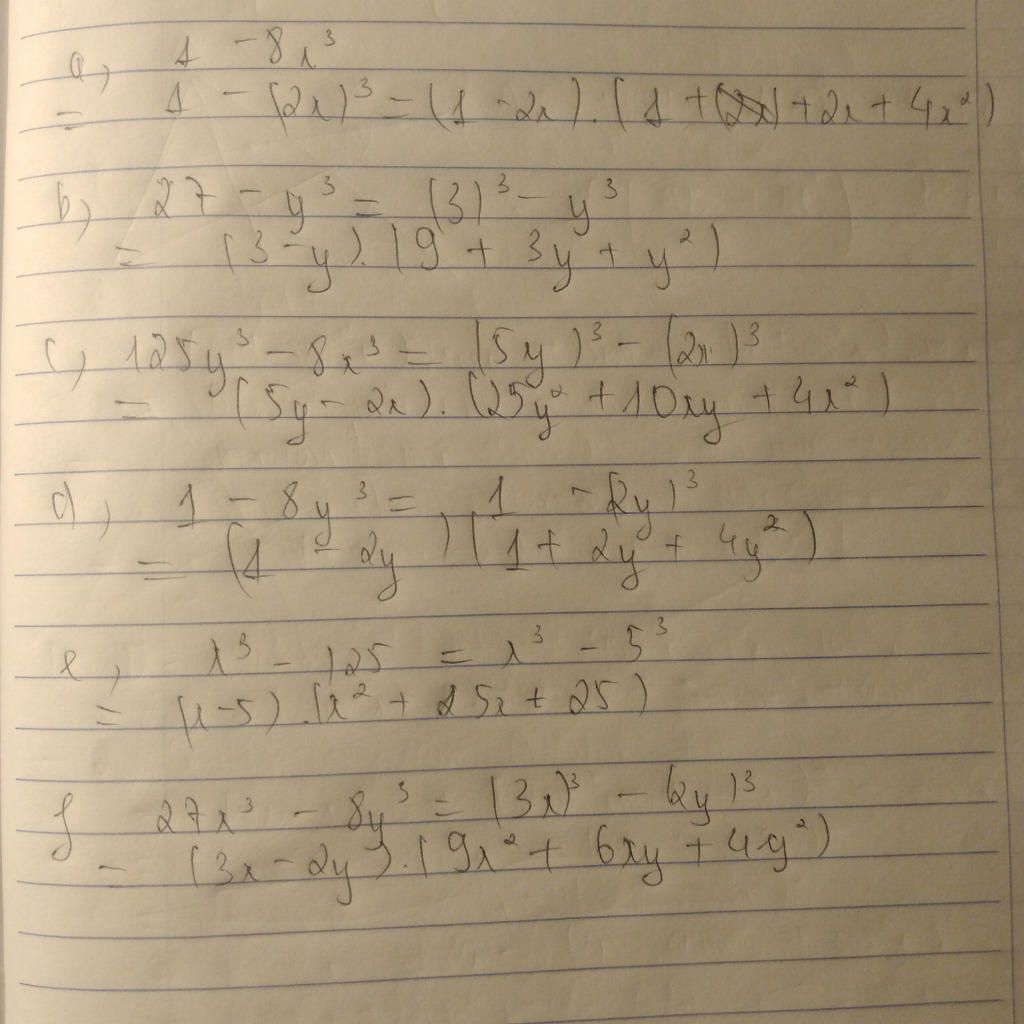 a, 1 - 8x³
= 1 - (2x)³ = (1 - 2x).(1 + 2x + 4x²)
b) 27 - y³ = (3)³ - y³
= (3-y).(9 + 3y + y²)
c, 125y³ - 8x³ = (5y)³ - (2x)³
= (5y - 2x).(25y² + 10xy + 4x²)
d), 1 - 8y³ = 1 - (2y)³
= (1 - 2y)(1 + 2y + 4y²)
e, x³ - 125 = x³ - 5³
= (x-5).(x² + 5x + 25)
f 27x³ - 8y³ = (3x)³ - (2y)³
= (3x - 2y).(9x² + 6xy + 4y²)